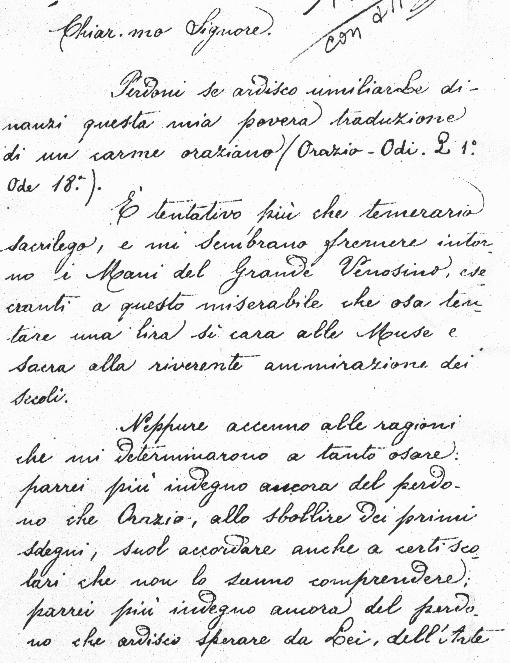 con
Chiar.mo Signore.
Perdoni se ardisco umiliarLe di-
nanzi questa mia povera traduzione
di un carme oraziano (Orazio - Odi. L 1°
Ode 18ª).
È tentativo più che temerario
sacrilego, e mi sembrano fremere intor-
no i Mani del Grande Venosino, ese
cranti a questo miserabile che osa ten-
tare una lira sì cara alle Muse e
sacra alla riverente ammirazione dei
secoli.
Neppure accenno alle ragioni
che mi determinarono a tanto osare:
parrei più indegno ancora del perdo-
no che Orazio, allo sbollire dei primi
sdegni, suol accordare anche a certi sco-
lari che non lo sanno comprendere;
parrei più indegno ancora del perdo-
no che ardisco sperare da Lei, dell'Arte